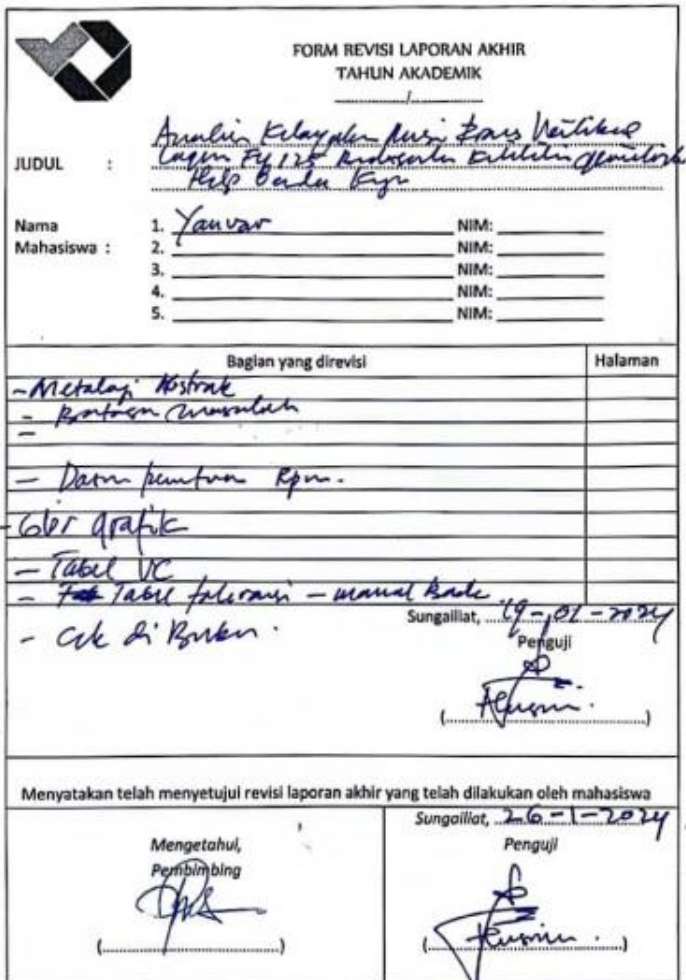 FORM REVISI LAPORAN AKHIR
TAHUN AKADEMIK
............/............
JUDUL :
Analisis Kelayakan Mesin Vertikal
FV 125 Berdasarkan
Benda Kerja
Nama
Mahasiswa :
1. Yanuar NIM:
2. NIM:
3. NIM:
4. NIM:
5. NIM:
Bagian yang direvisi Halaman
- Abstrak
- Batasan masalah
-
- Dasar Rpm.
- Gbr grafik
- Tabel VC
- Tabel toleransi - manual
- Cek di Buku.
Sungailiat, 19-01-2024
Penguji
(............)
Menyatakan telah menyetujui revisi laporan akhir yang telah dilakukan oleh mahasiswa
Mengetahui,
Pembimbing
(............)
Sungailiat, 26-1-2024
Penguji
(............)